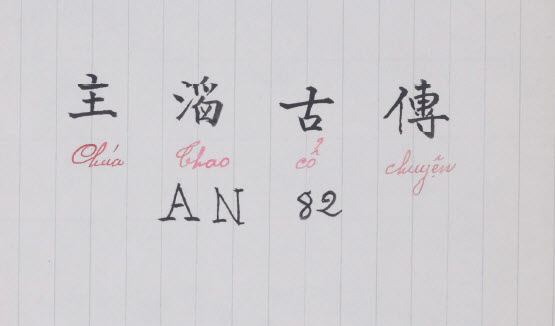 主 滔 古 傳
Chúa Thao cổ chuyện
AN 82